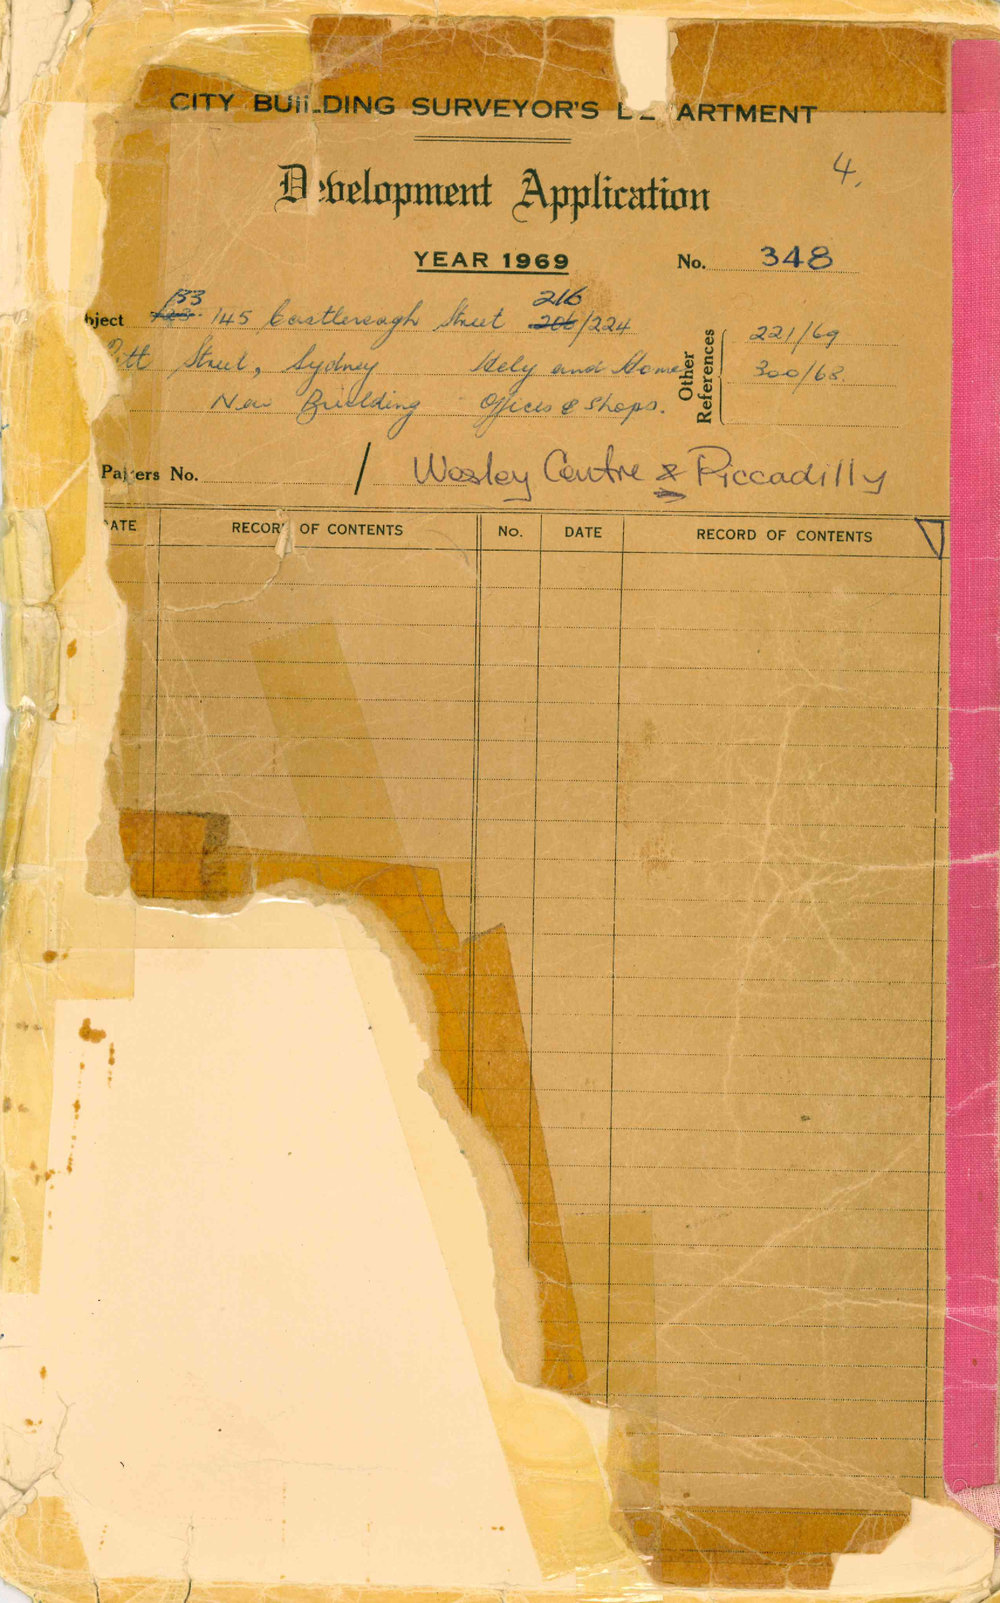 CITY BUILDING SURVEYOR'S DEPARTMENT
4.
Development Application
YEAR 1969 No. 348
133 216
bject 145 Castlereagh Street 206/224
Pitt Street, Sydney Hely and Horne
New Building Offices & Shops.
Other References
221/69
300/68.
Papers No. / Wesley Centre & Piccadilly
ATE RECORD OF CONTENTS No. DATE RECORD OF CONTENTS